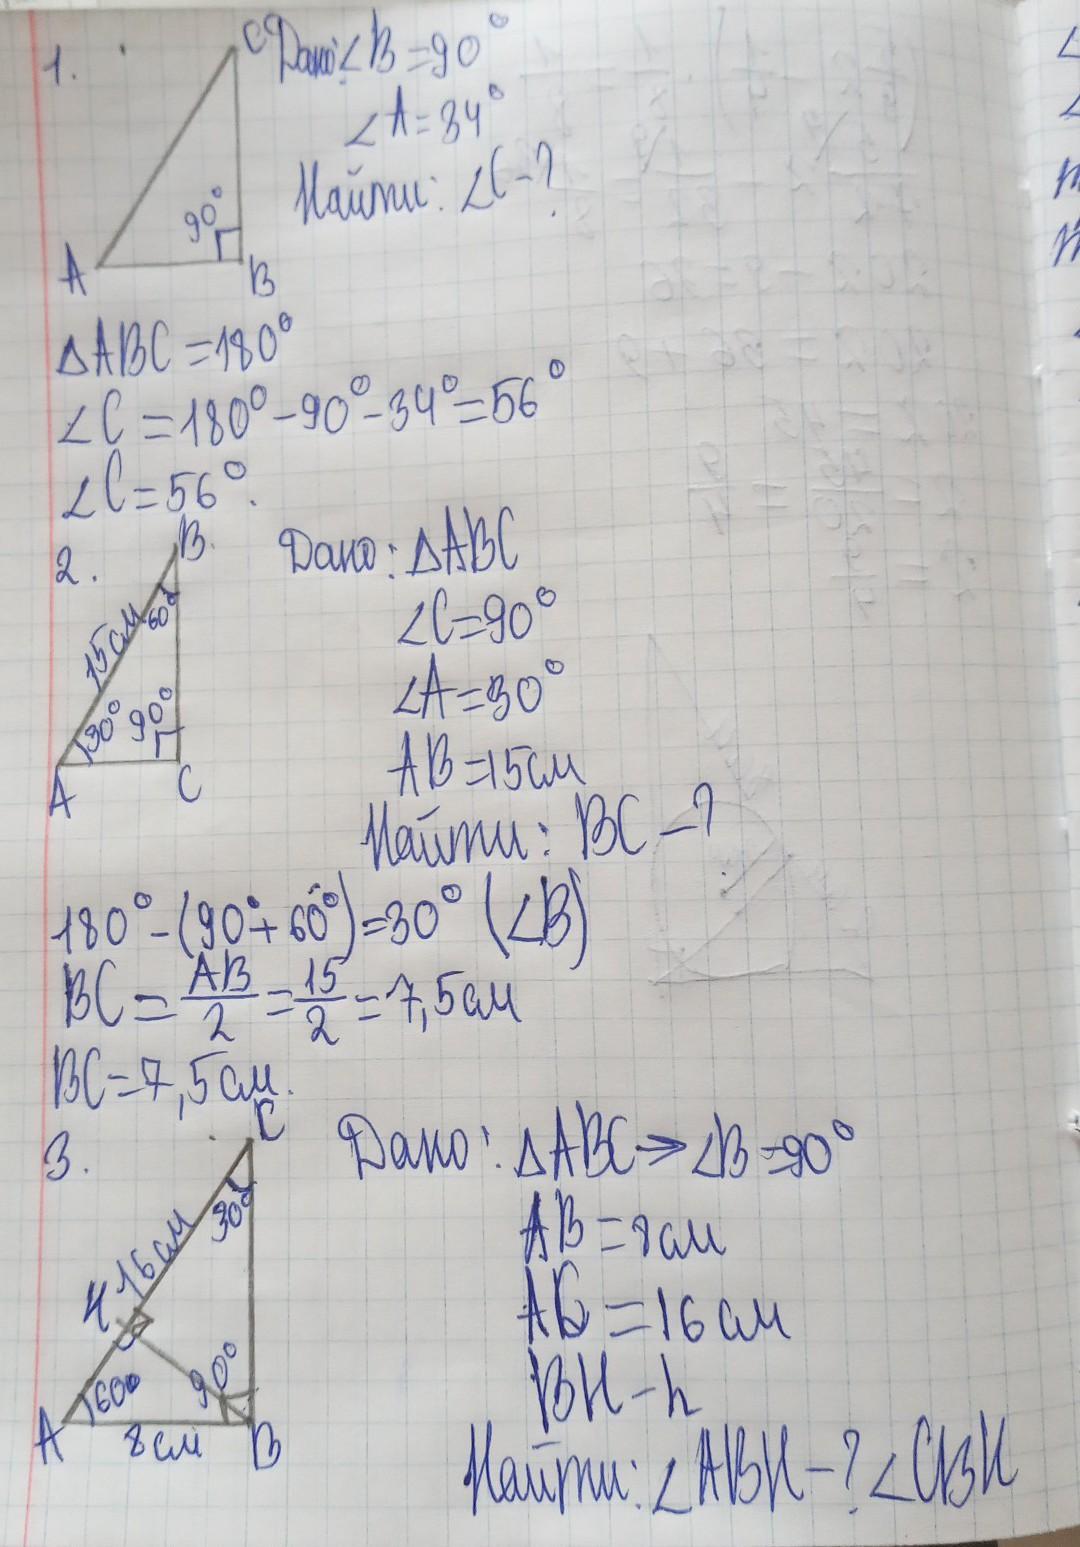 1.
C
Дано: ∠B = 90°
∠A = 34°
Найти: ∠C - ?
90°
A
B
△ABC = 180°
∠C = 180° - 90° - 34° = 56°
∠C = 56°.
2.
B
15 см
60°
30°
90°
A
C
Дано: △ABC
∠C = 90°
∠A = 30°
AB = 15 см
Найти: BC - ?
180° - (90° + 60°) = 30° (∠B)
BC = AB/2 = 15/2 = 7,5 см
BC = 7,5 см.
3.
C
30°
16 см
H
60°
90°
A
8 см
B
Дано: △ABC → ∠B = 90°
AB = 8 см
AC = 16 см
BH - h
Найти: ∠ABH - ? ∠CBH